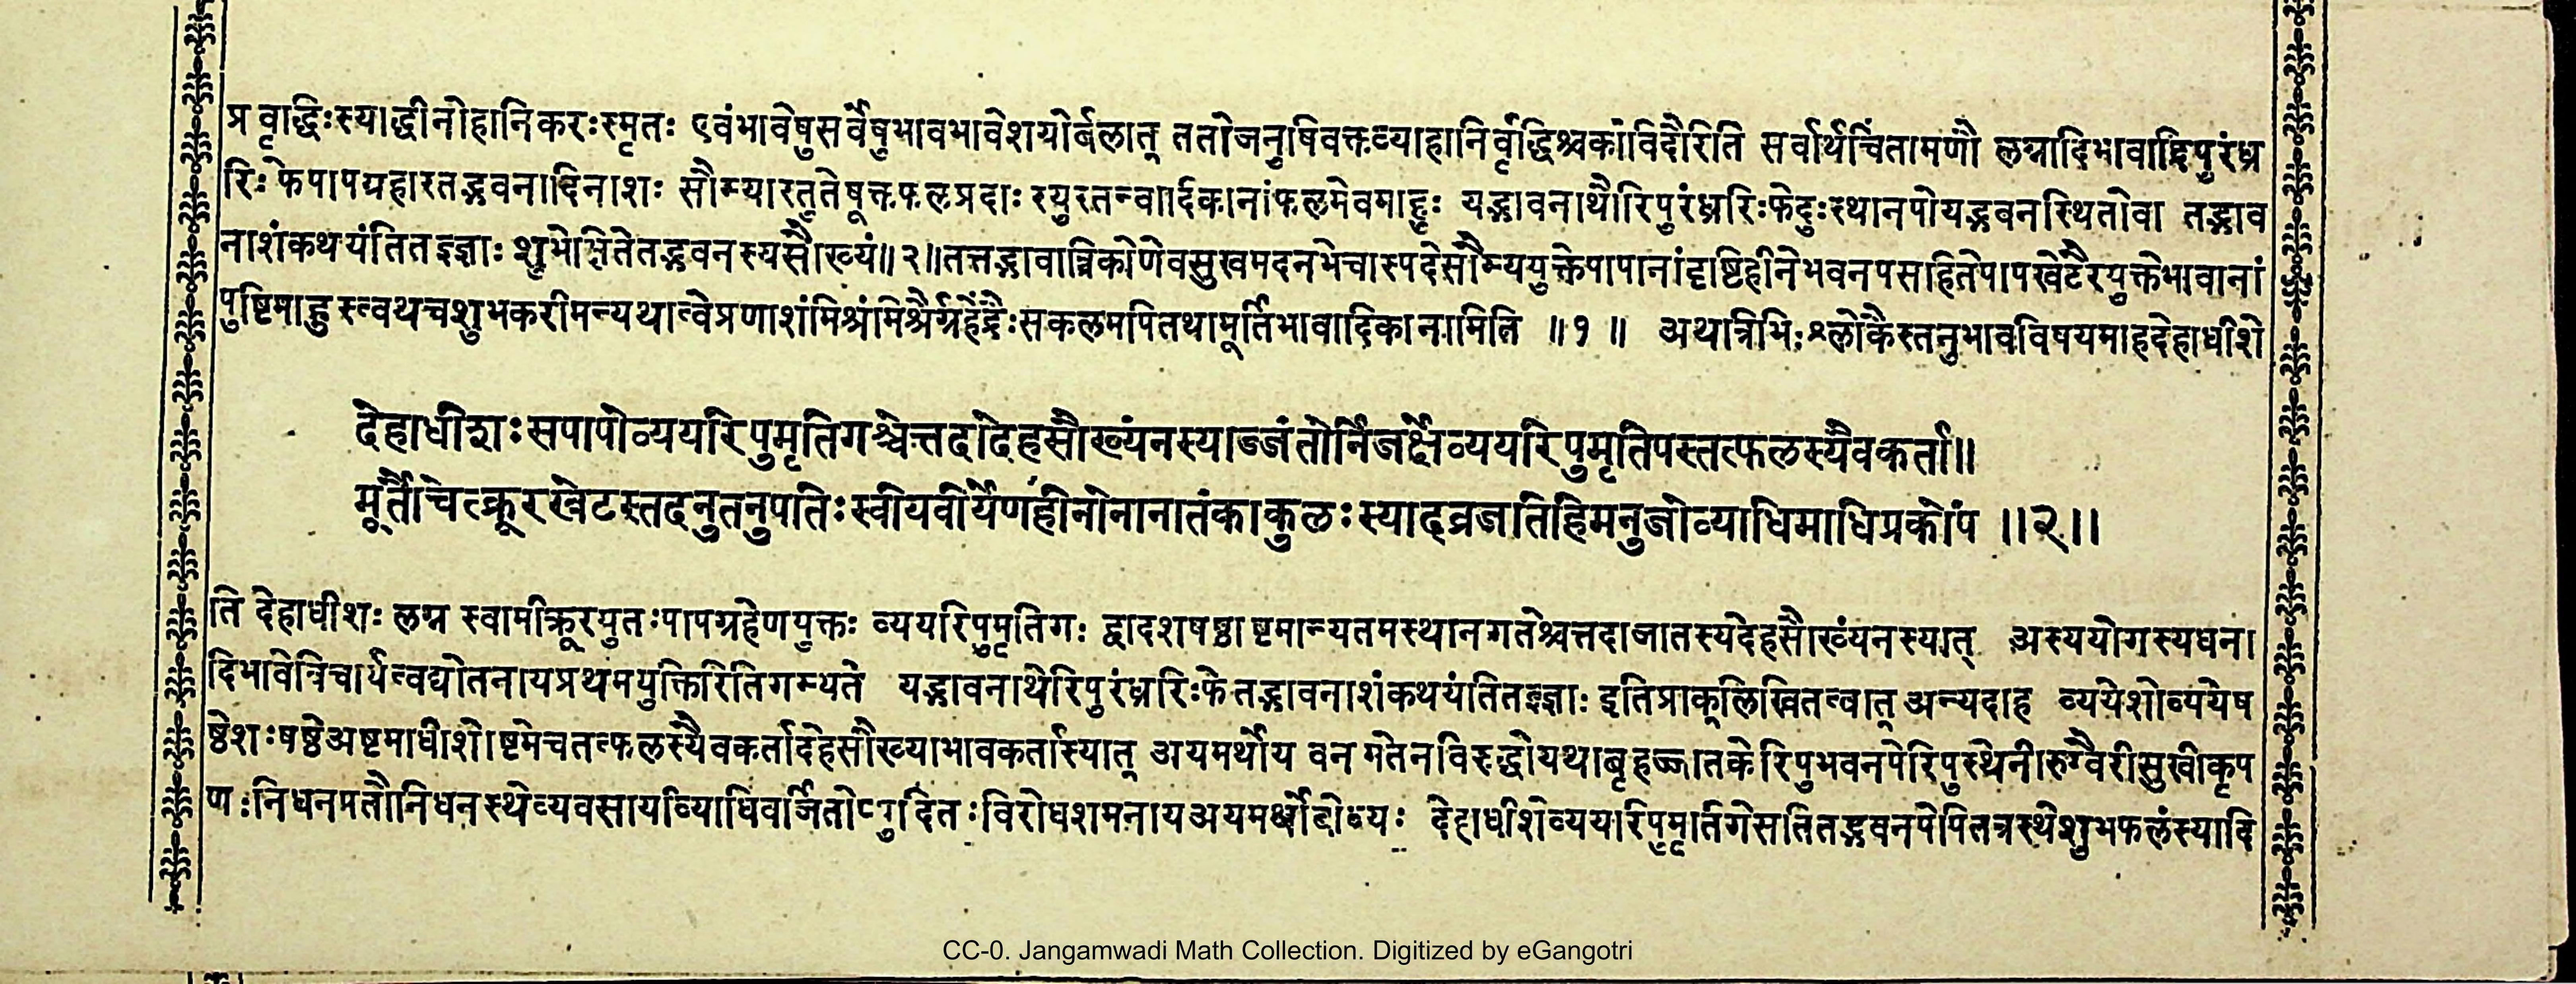 प्रवृद्धिःस्याद्धीनोहानिकरःस्मृतः एवंभावेषुसर्वेषुभावभावेशयोर्बलात् ततोजनुषिवक्तव्याहानिर्वृद्धिश्चकोविदैरिति सर्वार्थचिंतामणौ लग्नादिभावाद्रिपुरंध्र
रिःफेपापग्रहास्तद्भवनादिनाशः सौम्यास्तुतेषूक्तफलप्रदाः स्युस्तन्वादिकानांफलमेवमाहुः यद्भावनाथोरिपुरंध्ररिःफेदुःस्थानपोयद्भवनस्थितोवा तद्भाव
नाशंकथयंतितज्ज्ञाः शुभेक्षितेतद्भवनस्यसौख्यं॥२॥तत्तद्भावात्त्रिकोणेवसुखमदनभेचास्पदेसौम्ययुक्तेपापानांदृष्टिहीनेभवनपसहितेपापखेटैरयुक्तेभावानां
पुष्टिमाहुस्त्वथचशुभकरीमन्यथात्वेप्रणाशंमिश्रंमिश्रैर्ग्रहेंद्रैःसकलमपितथामूर्तिभावादिकानामिति ॥१॥ अथात्रिभिःश्लोकैस्तनुभावविषयमाहदेहाधीशे
देहाधीशःसपापोव्ययरिपुमृतिगश्चेत्तदादेहसौख्यंनस्याज्जंतोर्निजर्क्षेव्ययरिपुमृतिपस्तत्फलस्यैवकर्ता॥
मूर्तौचेत्क्रूरखेटस्तदनुतनुपतिःस्वीयवीर्येणहीनोनानातंकाकुलःस्याद्व्रजतिहिमनुजोव्याधिमाधिप्रकोपं ॥२॥
ति देहाधीशः लग्न स्वामीक्रूरयुतःपापग्रहेणयुक्तः व्ययरिपुमृतिगः द्वादशषष्ठाष्टमान्यतमस्थानगतेश्चत्तदाजातस्यदेहसौख्यंनस्यात् अस्ययोगस्यधना
दिभावेत्रिचार्यत्वद्योतनायप्रथमयुक्तिरितिगम्यते यद्भावनाथेरिपुरंध्ररिःफेतद्भावनाशंकथयंतितज्ज्ञाः इतिप्राक्लिखितत्वात् अन्यदाह व्ययेशोव्ययेष
ष्ठेशःषष्ठेअष्टमाधीशोष्टमेचतत्फलस्यैवकर्तादेहसौख्याभावकर्तास्यात् अयमर्थोय वन मतेनविरुद्धोयथाबृहज्जातकेरिपुभवनपेरिपुस्थेनीरुग्वैरीसुखीकृप
णःनिधनपतौनिधनस्थेव्यवसायव्याधिवर्जितो विरोधशमनायअयमर्थोबोध्यः देहाधीशेव्ययारिपुमृतिगेसतितद्भवनपेपितत्रस्थेशुभफलंस्यादि
CC-0. Jangamwadi Math Collection. Digitized by eGangotri